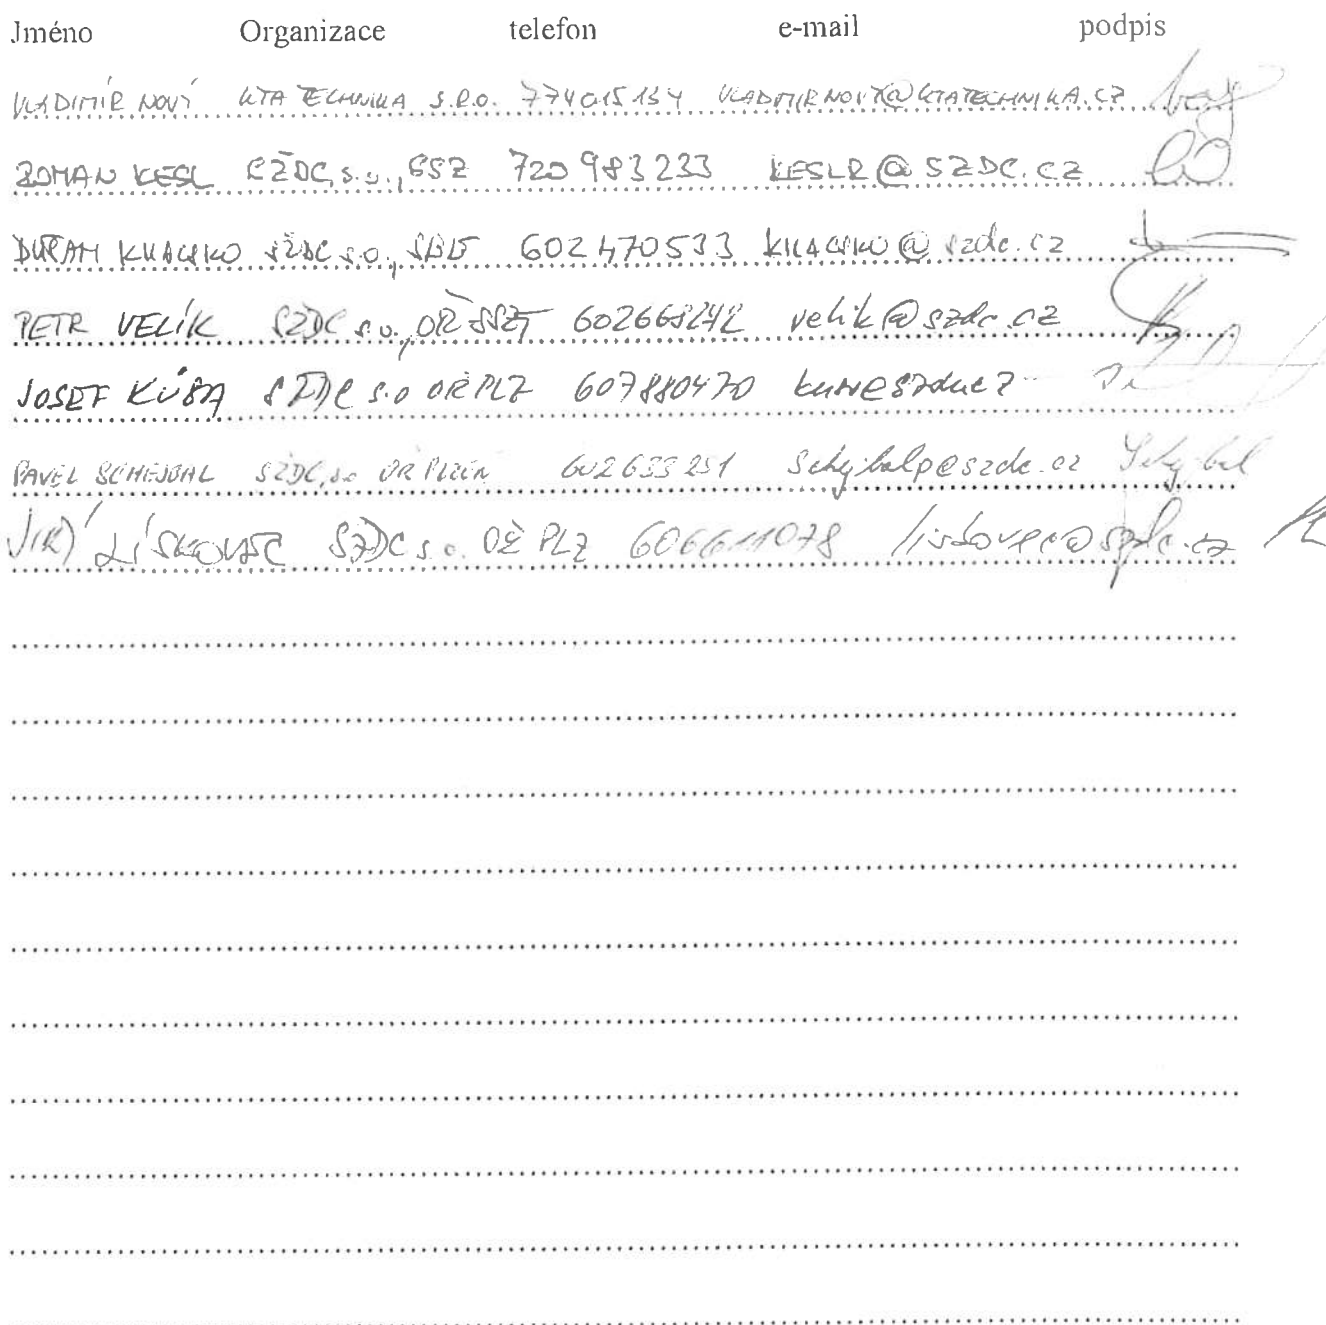 Jméno Organizace telefon e-mail podpis
VLADIMÍR NOVÝ KTA TECHNIKA s.r.o. 774015154 VLADIMIR.NOVY@KTATECHNIKA.CZ
ROMAN KESL SŽDC, s.o., SSZ 720 983 233 KESLR@SZDC.CZ
SŽDC s.o., 602 470533 @szdc.cz
PETR VELÍK SŽDC s.o., OŘ SSZT velik@szdc.cz
JOSEF SŽDC s.o OŘ PLZ 607880470
PAVEL SCHEJBAL SŽDC, s.o OŘ PLZEŇ Schejbalp@szdc.cz Schejbal
JIŘÍ LÍSKOVEC SŽDC s.o. OŘ PLZ 606611078 liskovec@szdc.cz